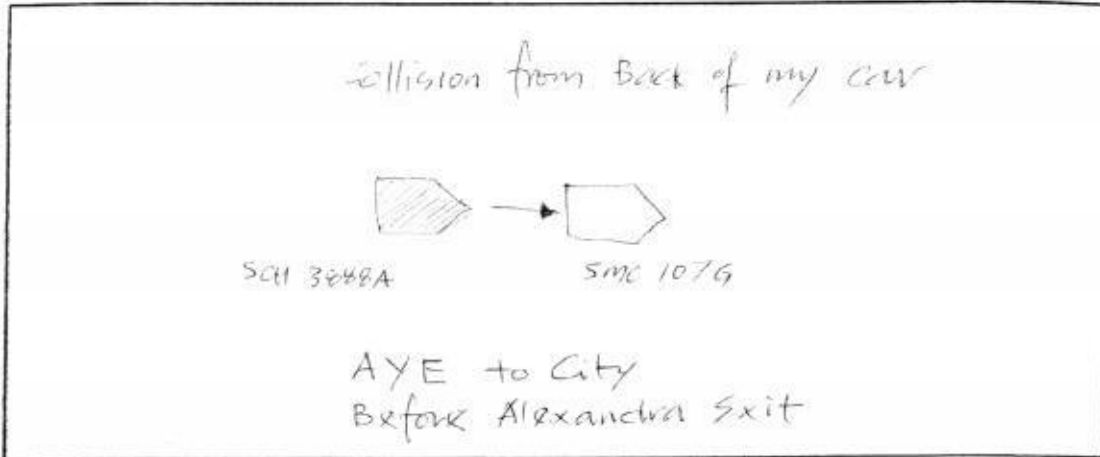 collision from Back of my car
SCH 3888A SMC 107G
AYE to City
Before Alexandra Exit